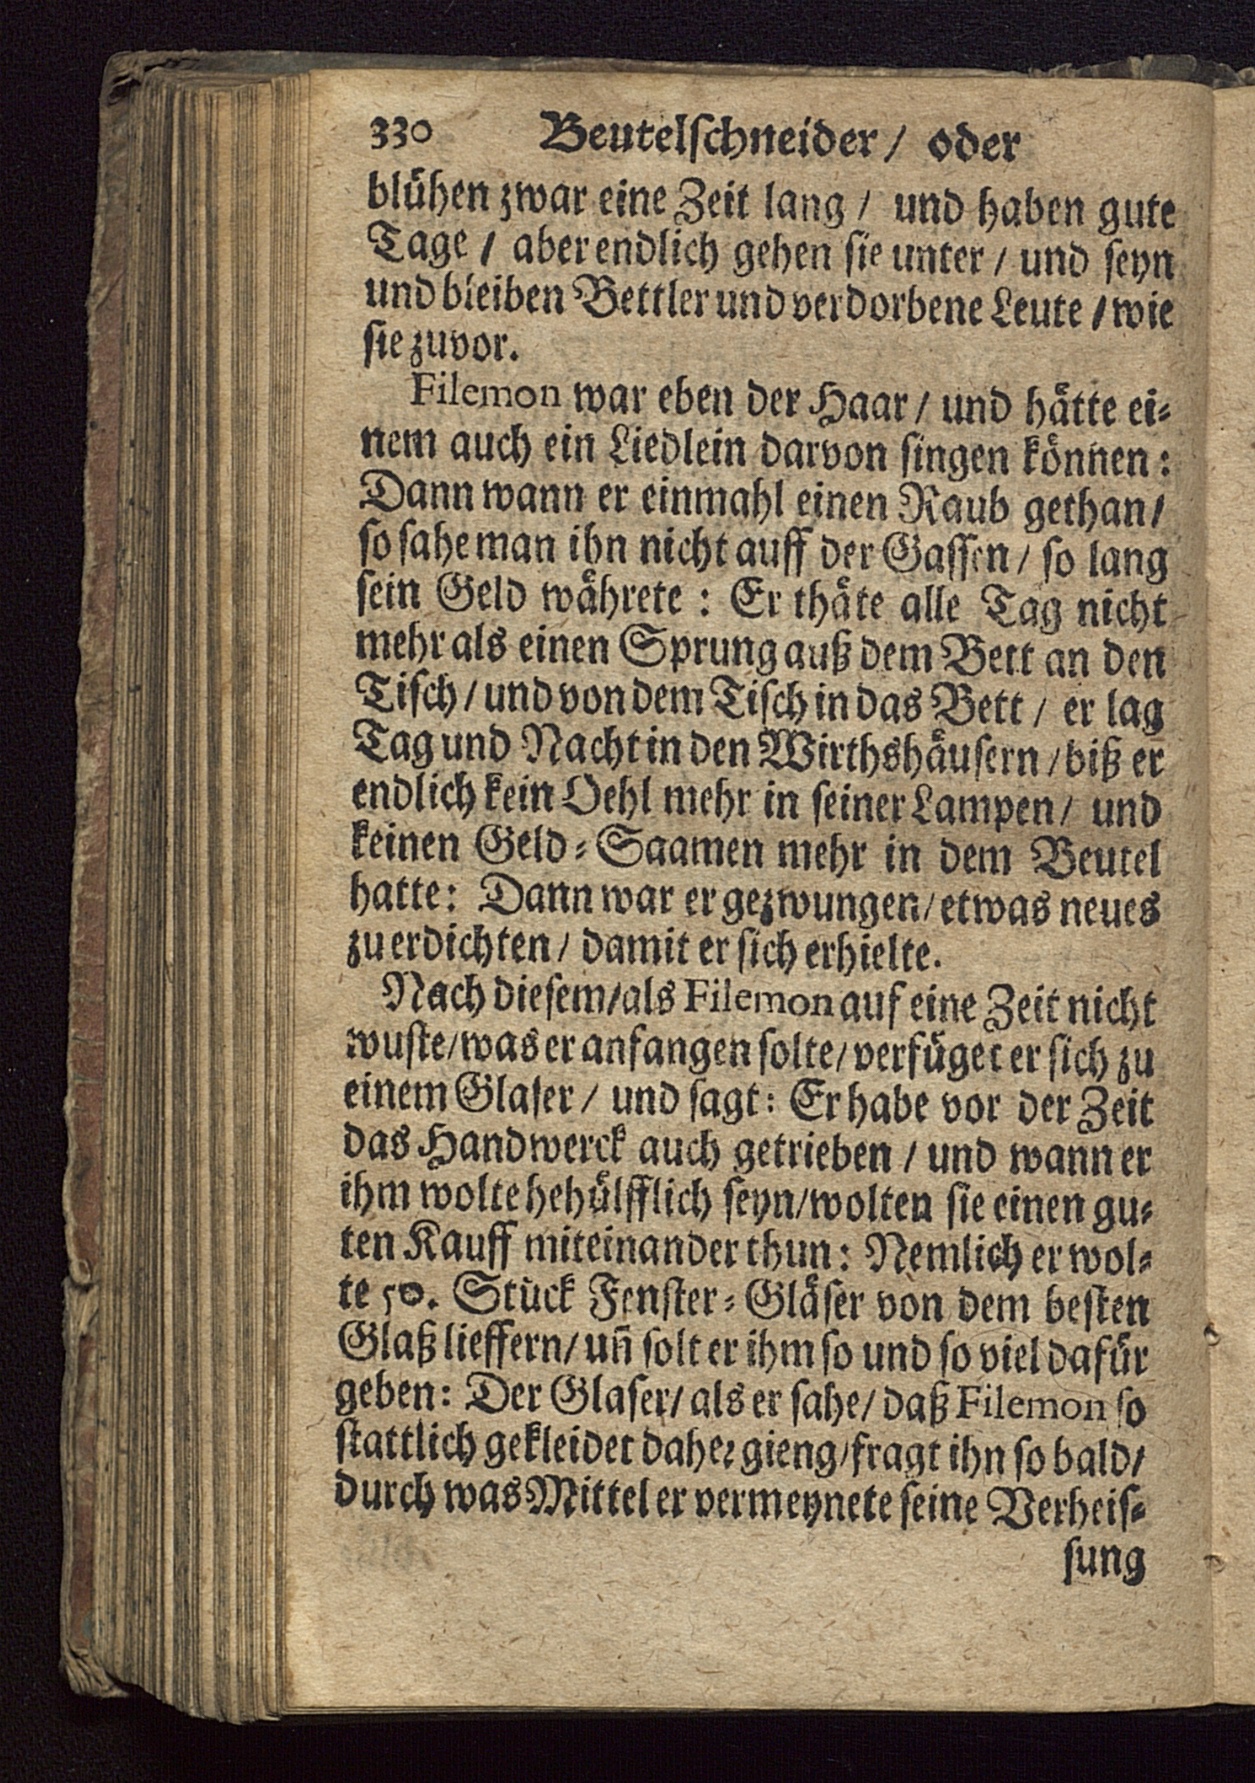 330 Beutelschneider / oder
blühen zwar eine Zeit lang / und haben gute
Tage / aber endlich gehen sie unter / und seyn
und bleiben Bettler und verdorbene Leute / wie
sie zuvor.
Filemon war eben der Haar / und hätte ei-
nem auch ein Liedlein darvon singen können:
Dann wann er einmahl einen Raub gethan /
so sahe man ihn nicht auff der Gassen / so lang
sein Geld währete: Er thäte alle Tag nicht
mehr als einen Sprung auß dem Bett an den
Tisch / und von dem Tisch in das Bett / er lag
Tag und Nacht in den Wirthshäusern / biß er
endlich kein Oehl mehr in seiner Lampen / und
keinen Geld-Saamen mehr in dem Beutel
hatte: Dann war er gezwungen / etwas neues
zu erdichten / damit er sich erhielte.
Nach diesem / als Filemon auf eine Zeit nicht
wuste / was er anfangen solte / verfüget er sich zu
einem Glaser / und sagt: Er habe vor der Zeit
das Handwerck auch getrieben / und wann er
ihm wolte hehülfflich seyn / wolten sie einen gu-
ten Kauff miteinander thun: Nemlich er wol-
te 50. Stück Fenster-Gläser von dem besten
Glaß lieffern / uñ solt er ihm so und so viel dafür
geben: Der Glaser / als er sahe / daß Filemon so
stattlich gekleidet daher gieng / fragt ihn so bald /
durch was Mittel er vermeynete seine Verheis-
sung